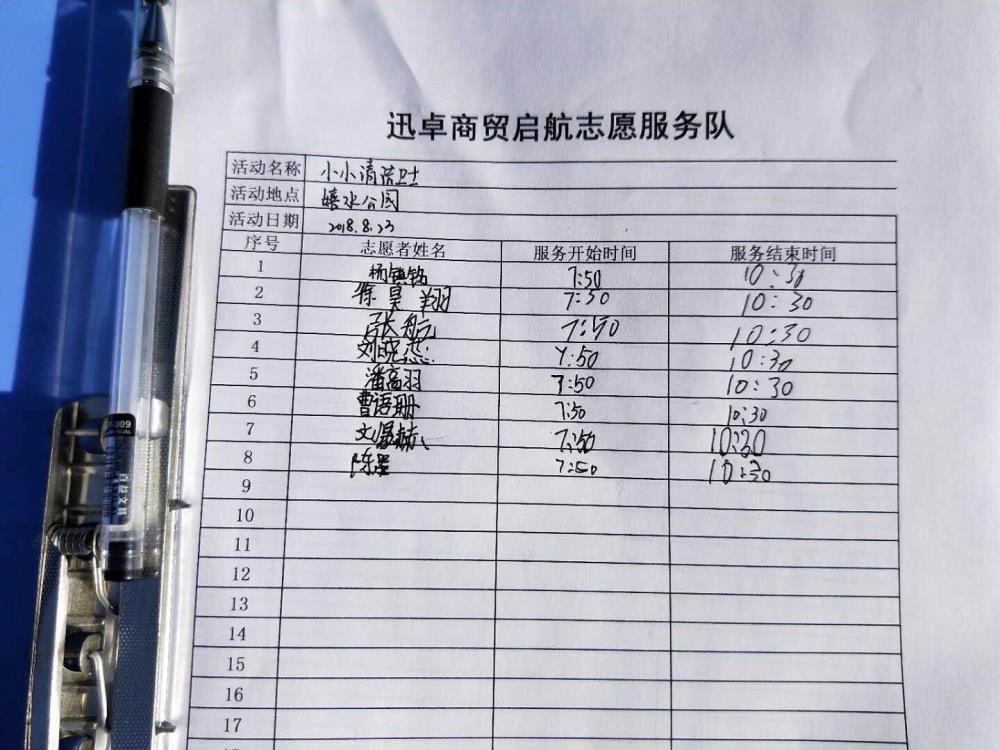 迅卓商贸启航志愿服务队
活动名称 小小清洁卫士
活动地点 嬉水公园
活动日期 2018.8.23
序号 志愿者姓名 服务开始时间 服务结束时间
1 杨镇铭 7:50 10:30
2 徐昊翔 7:50 10:30
3 张航 7:50 10:30
4 刘晓 7:50 10:30
5 潘高羽 7:50 10:30
6 曹语珊 7:50 10:30
7 文 赫 7:50 10:30
8 陈 7:50 10:30
9
10
11
12
13
14
15
16
17
百益文具